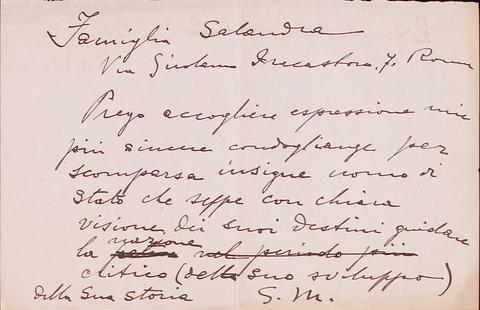 Famiglia Salandra
Via Girolamo Fracastoro, 7. Roma
Prego accogliere espressione mie
più sincere condoglianze per
scomparsa insigne uomo di
Stato che seppe con chiara
visione dei suoi destini guidare
nazione
la patria nel periodo più
critico (dello suo sviluppo)
della sua storia G. M.